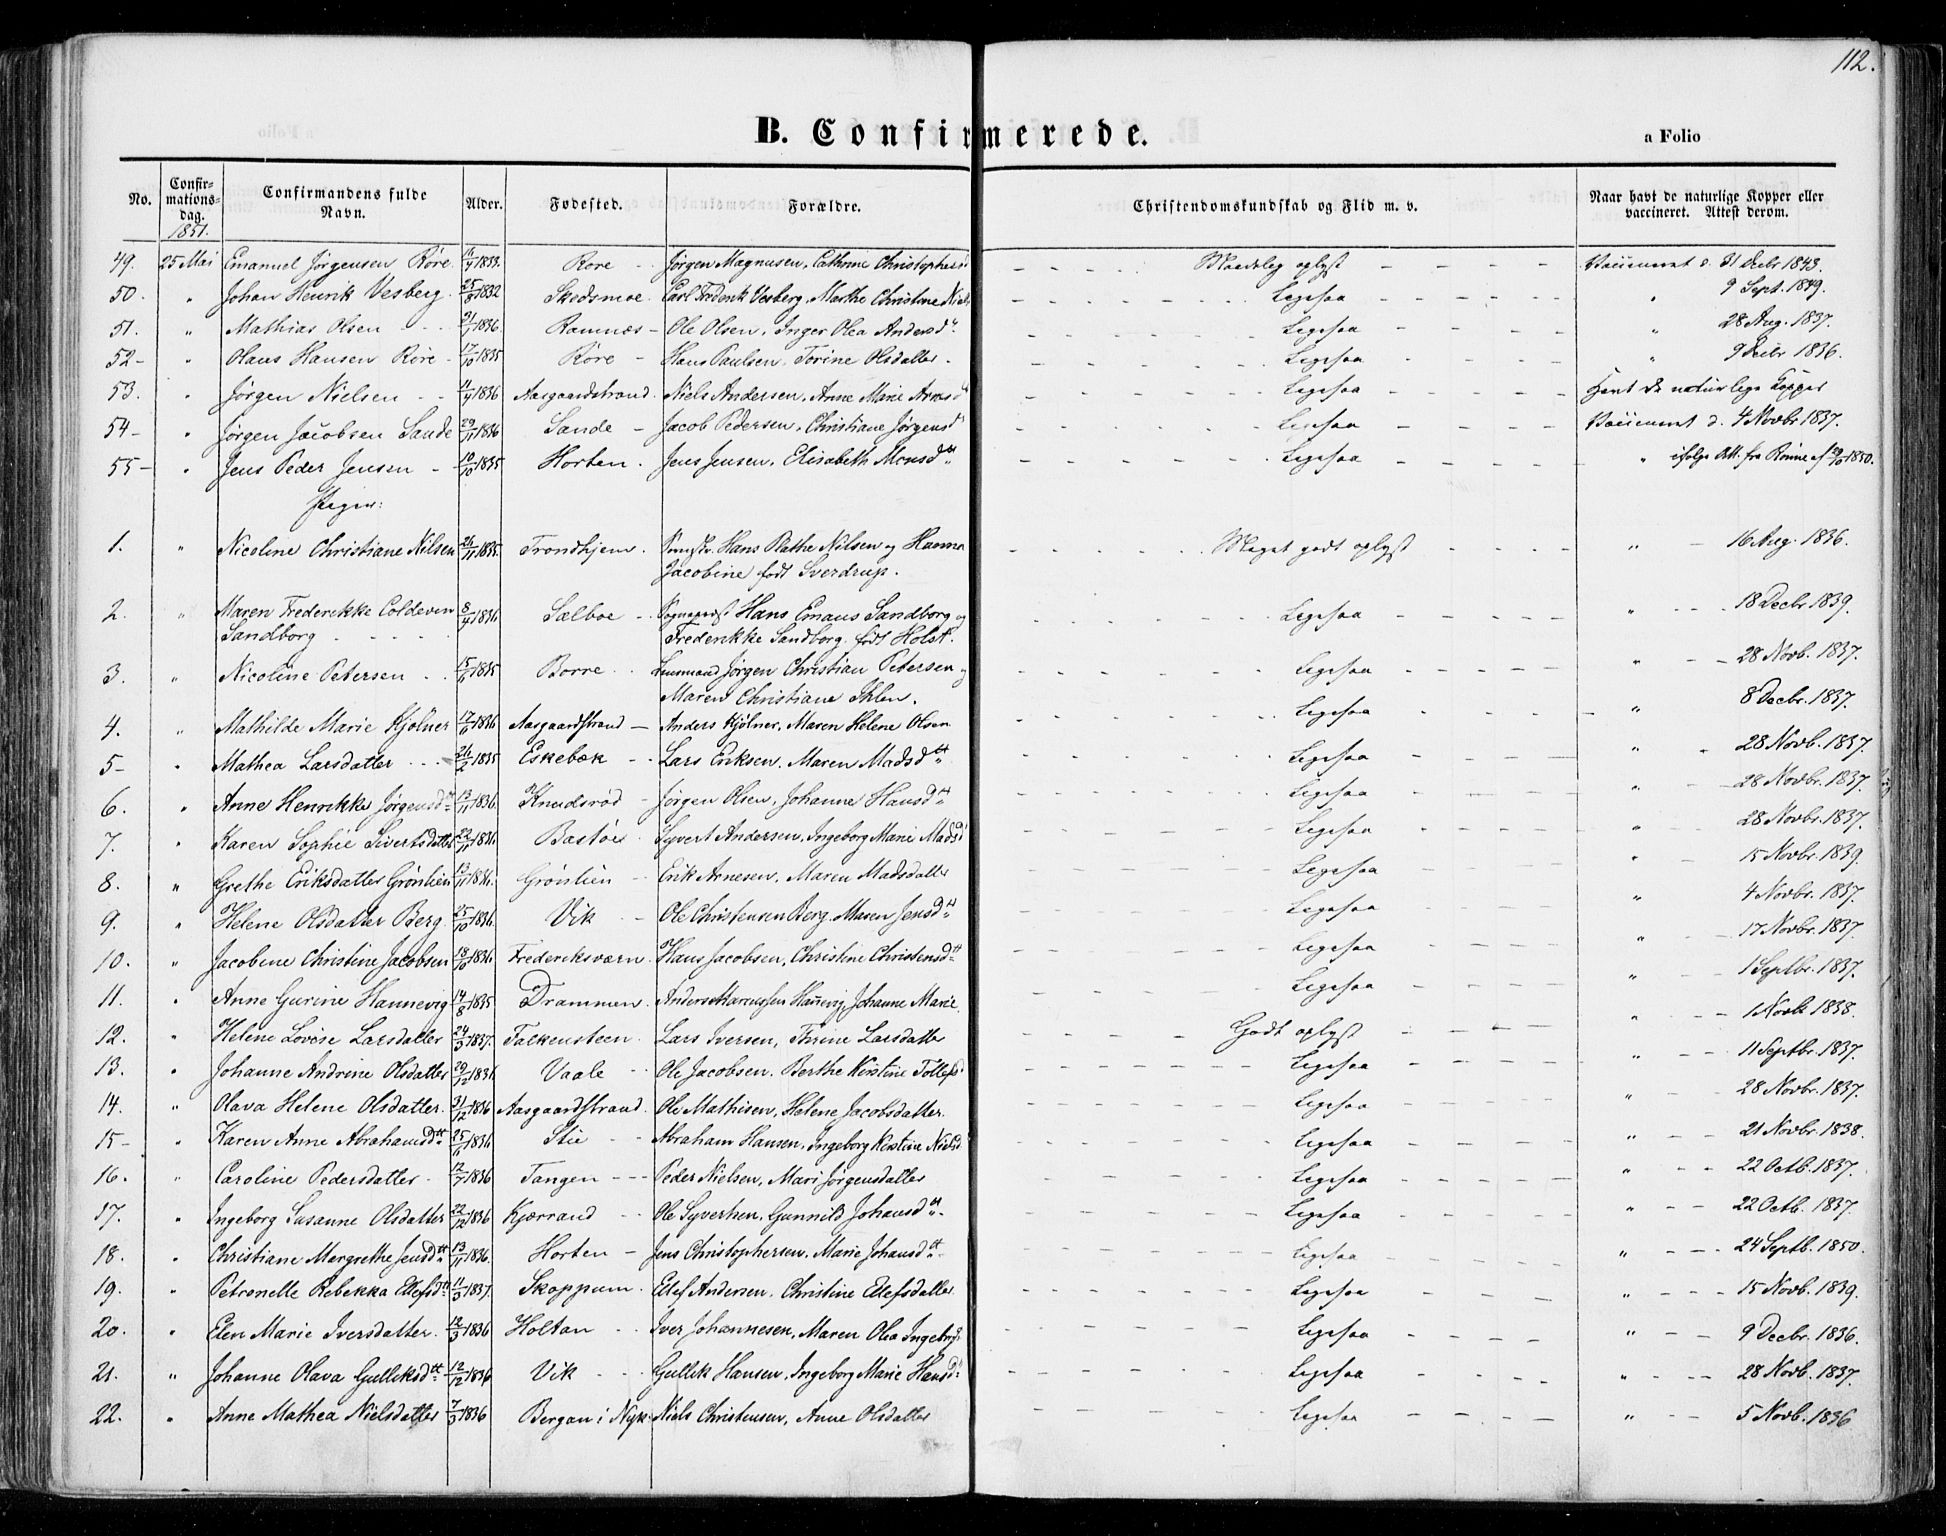 112.
B. Confirmerede.
a Folio
No. Confirmationsdag. 1851. Confirmandens fulde Navn. Alder. Fødested. Forældre. Christendomskundskab og Flid m. v. Naar havt de naturlige Kopper eller vaccineret. Attest derom.
49. 25 Mai Emanuel Jørgensen Røre 1833. Røre Jørgen Magnusen, Cathrine Maadelig oplyst Vaccineret d. 31 Decbr 1843.
50. " Johan Henrik Vesberg 25/8 1832 Skedsmoe Carl Frederik Vesberg, Marthe Christine Niels Ligesaa " 9 Sept. 1849.
51. " Mathias Olsen 1836. Ramnæs Ole Olsen, Inger Olea Andersd Ligesaa " 28 Aug. 1837.
52 " Olaus Hansen Røre 17/10 1835 Røre Hans Paulsen, Torine Olsdatter Ligesaa " 9 Decbr 1836.
53. " Jørgen Nielsen 11/4 1836 Aasgaardstrand Niels Andersen, Anne Marie Ligesaa Havt de naturlige Kopper
54 " Jørgen Jacobsen Sande 29/11 1836 Sande Jacob Pedersen, Christiane Jørgensd Ligesaa Vaccineret d. 4 Novbr 1837.
55 " Jens Peder Jensen 10/10 1835 Horten Jens Jensen, Elisabeth Monsdtt Ligesaa " ifølge Att. fra Rønne af 29/10 1850.
Piger:
1. " Nicoline Christiane Nilsen 26/11 1835. Trondhjem Hans Plathe Nilsen og Hanna Meget godt oplyst " 16 Aug. 1836.
Jacobine født Sverdrup.
2. " Maren Frederikke Coldevin 8/4 1836 Sælboe Sognepræst Hans Emaus Sandborg og Ligesaa " 18 Decbr 1839.
Sandborg Frederikke Sandborg født Holst.
3. " Nicoline Petersen 15/6 1835 Borre Lensmand Jørgen Christian Petersen og Ligesaa " 28 Novb. 1837.
Maren Christiane Ihlen.
4. " Mathilde Marie Kjølner 17/6 1836 Aasgaardstrand Anders Kjølner, Maren Helene Olsen Ligesaa " 8 Decbr. 1837.
5 " Mathea Larsdatter 26/2 1835 Eskebæk Lars Eriksen, Maren Madsdtt Ligesaa " 28 Novb. 1837.
6. " Anne Henrikke Jørgensdtt 13/11 1836. Knudsrød Jørgen Olsen, Johanne Hansdtt Ligesaa " 28 Novbr. 1837.
7. " Karen Sophie Sivertsdatter 22/11 1836. Bastøe Syvert Andersen, Ingeborg Marie Madsd Ligesaa " 28 Novbr. 1837.
8. " Grethe Eriksdatter Grønlien 13/11 1836. Grønlien Erik Arnesen, Maren Madsdatter Ligesaa " 15 Novbr. 1839.
9. " Helene Olsdatter Berg 25/10 1836. Vik Ole Christensen Berg, Maren Jensdtt Ligesaa " 4 Novbr. 1837.
10. " Jacobine Christine Jacobsen 18/10 1836. Frederiksværn Hans Jacobsen, Christine Christensdtt Ligesaa " 17 Novbr. 1837.
11. " Anne Gurine Hannevig 14/8 1835 Drammen Anders Marcussen Hannevig, Johanne Marie Ligesaa " 1 Septbr. 1837.
12. " Helene Lovise Larsdatter 24/3 1837. Falkensteen Lars Iversen, Thrine Larsdatter Godt oplyst " 1 Novb 1838.
13. " Johanne Andrine Olsdatter 29/12 1836 Vaale Ole Jacobsen, Berthe Kirstine Tollefsd Ligesaa " 11 Septbr. 1837.
14. " Olava Helene Olsdatter 31/12 1836 Aasgaardstrand Ole Mathisen, Helene Jacobsdatter Ligesaa " 28 Novbr. 1837.
15 " Karen Anne Abrahamsdtt 25/6 1836 Stie Abraham Hansen, Ingeborg Kirstine Nielsd Ligesaa " 21 Novbr. 1838.
16. " Caroline Pedersdatter 12/7 1836 Tangen Peder Nielsen, Mari Jørgensdatter Ligesaa " 22 Octb. 1837.
17. " Ingeborg Susanne Olsdatter 22/12 1836 Kjærrand Ole Syvertsen, Gunnild Johansdtt Ligesaa " 22 Octb. 1837.
18. " Christiane Margrethe Jensdtt 13/11 1836. Horten Jens Christophersen, Marie Johansdtt Ligesaa " 24 Septb. 1850.
19. " Petronelle Rebekka Ellefsdtt 11/3 1837. Skoppum Ellef Andersen, Christine Ellefsdatter Ligesaa " 15 Novb. 1839.
20. " Elen Marie Iversdatter 12/3 1836 Holtan Iver Johannesen, Maren Olea Ligesaa " 9 Decbr. 1836.
21. " Johanne Olava Gulliksdtt 12/12 1836 Vik Gullik Hansen, Ingeborg Marie Hansd Ligesaa " 28 Novb. 1837.
22. " Anne Mathea Nielsdatter 7/3 1836 Bergan i Nyk. Niels Christensen, Anne Olsdatter Ligesaa " 5 Novb. 1836